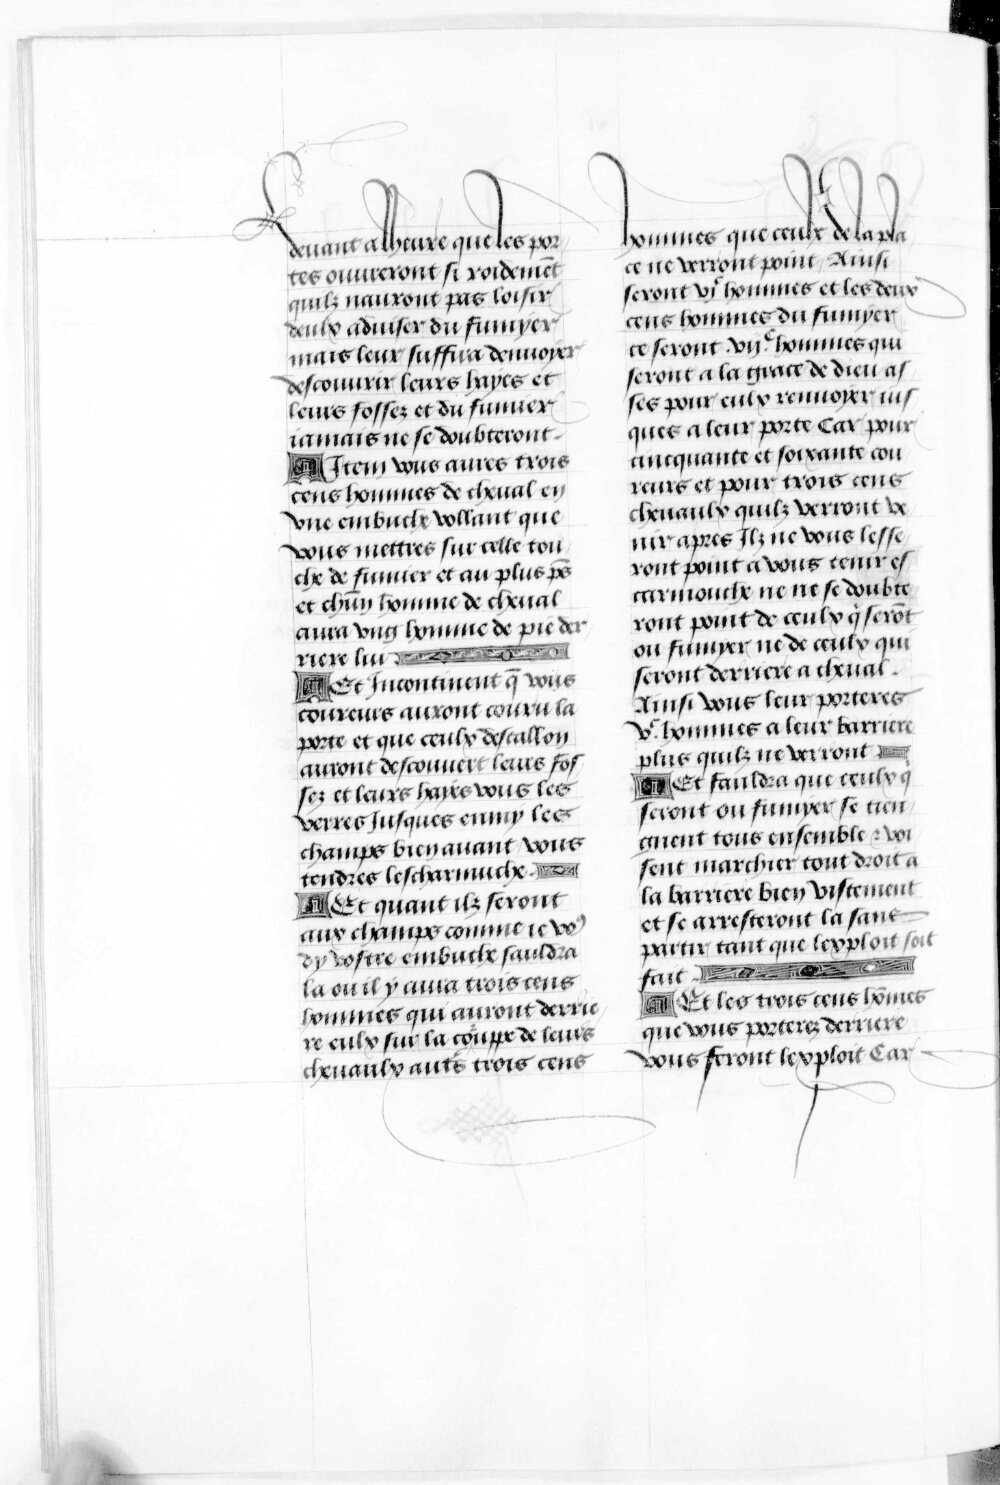 deuant a lheure que les por
tes ouureront si roidemẽt
quilz nauront pas loisir
deulx aduiser du fumyer
mais leur suffira denuoyer
descouurir leurs hayes et
leurs fossez et du fumier
iamais ne se doubteront.
Item vous aures trois
cens hommes de cheual en
vne embuche vollant que
vous mettres sur celle tou
che de fumier et au plus p̃s
et chũn homme de cheual
aura vng homme de pie der
riere lui
Et Incontinent q̃ vous
coureurs auront couru la
porte et que ceulx descallon
auront descouuert leurs fos
sez et leurs hayes vous les
verres Jusques enmy les
champs bien auant vous
tendres lescharmuche.
Et quant ilz seront
aux champs comme ie vo9
dy vostre embuche sauldra
la ou il y aura trois cens
hommes qui auront derrie
re eulx sur la crouppe de leurs
cheuaulx autš trois cens
hommes que ceulx de la pla
ce ne verront point Ainsi
seront vjc hommes et les deux
cens hommes du fumyer
ce seront .viijc hommes qui
seront a la grace de dieu as
ses pour eulx renuoyer ius
ques a leur porte Car pour
cincquante et soixante cou
reurs et pour trois cens
cheuaulx quilz verront ve
nir apres Ilz ne vous lesse
ront point a vous tenir es
carmouche ne ne se doubte
ront point de ceulx q̃ serõt
ou fumyer ne de ceulx qui
seront derriere a cheual.
Ainsi vous leur porteres
vc. hommes a leur barriere
plus quilz ne verront
Et fauldra que ceulx q̃
seront ou fumyer se tien
gnent tous ensemble et voi
sent marchier tout droit a
la barriere bien vistement
et se arresteront la sans
partir tant que lexploit soit
fait.
Et les trois cens hõmes
que vous porterez derriere
vous feront lexploit Car